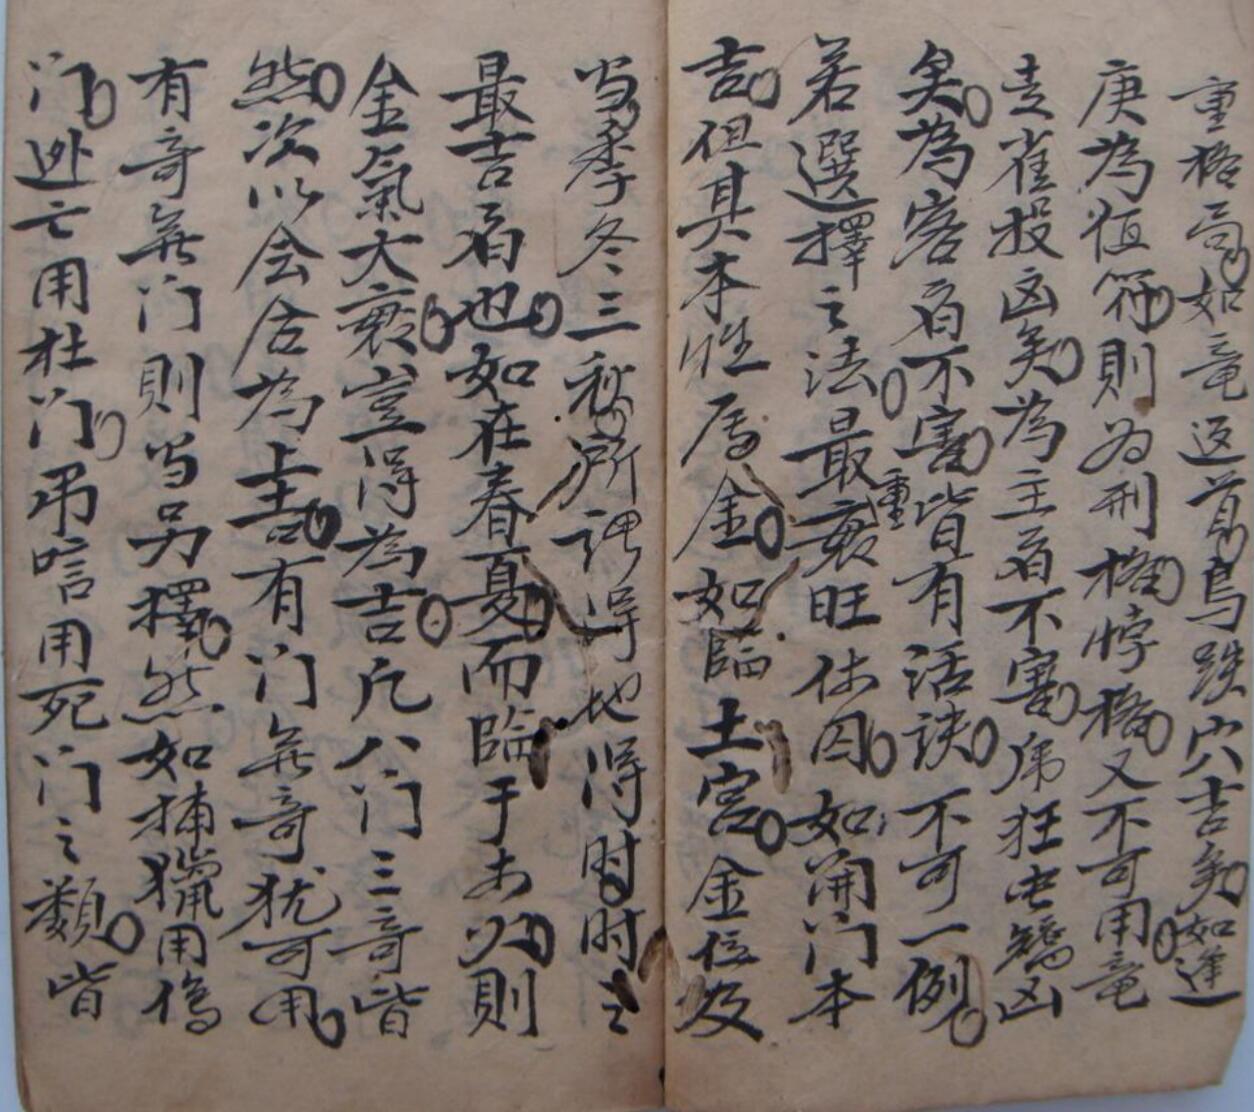 重格咼如竜返首鳥跌穴吉矣如逢
庚為值符則为刑格悖格又不可用竜
走雀投凶矣為主者不害虎狂虫矯凶
矣為客者不害皆有活訣不可一例
若選擇之法最重衰旺休囚如開门本
吉但其本性属金如臨土宮金位及
当季冬三秋所謂得地得时时之
最吉者也如在春夏而臨于
則
金氣大衰豈得為吉凡八门三奇皆
然次以会合為吉有门無奇犹可用
有奇無门則当另擇然如捕獵用傷
门逃亡用杜门吊唁用死门之類皆